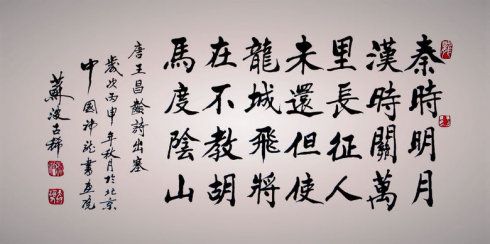 秦時明月
漢時關萬
里長征人
未還但使
龍城飛將
在不教胡
馬度陰山
唐王昌齡詩出塞
歲次丙申年秋月於北京
中國書画院
蘇波古稀